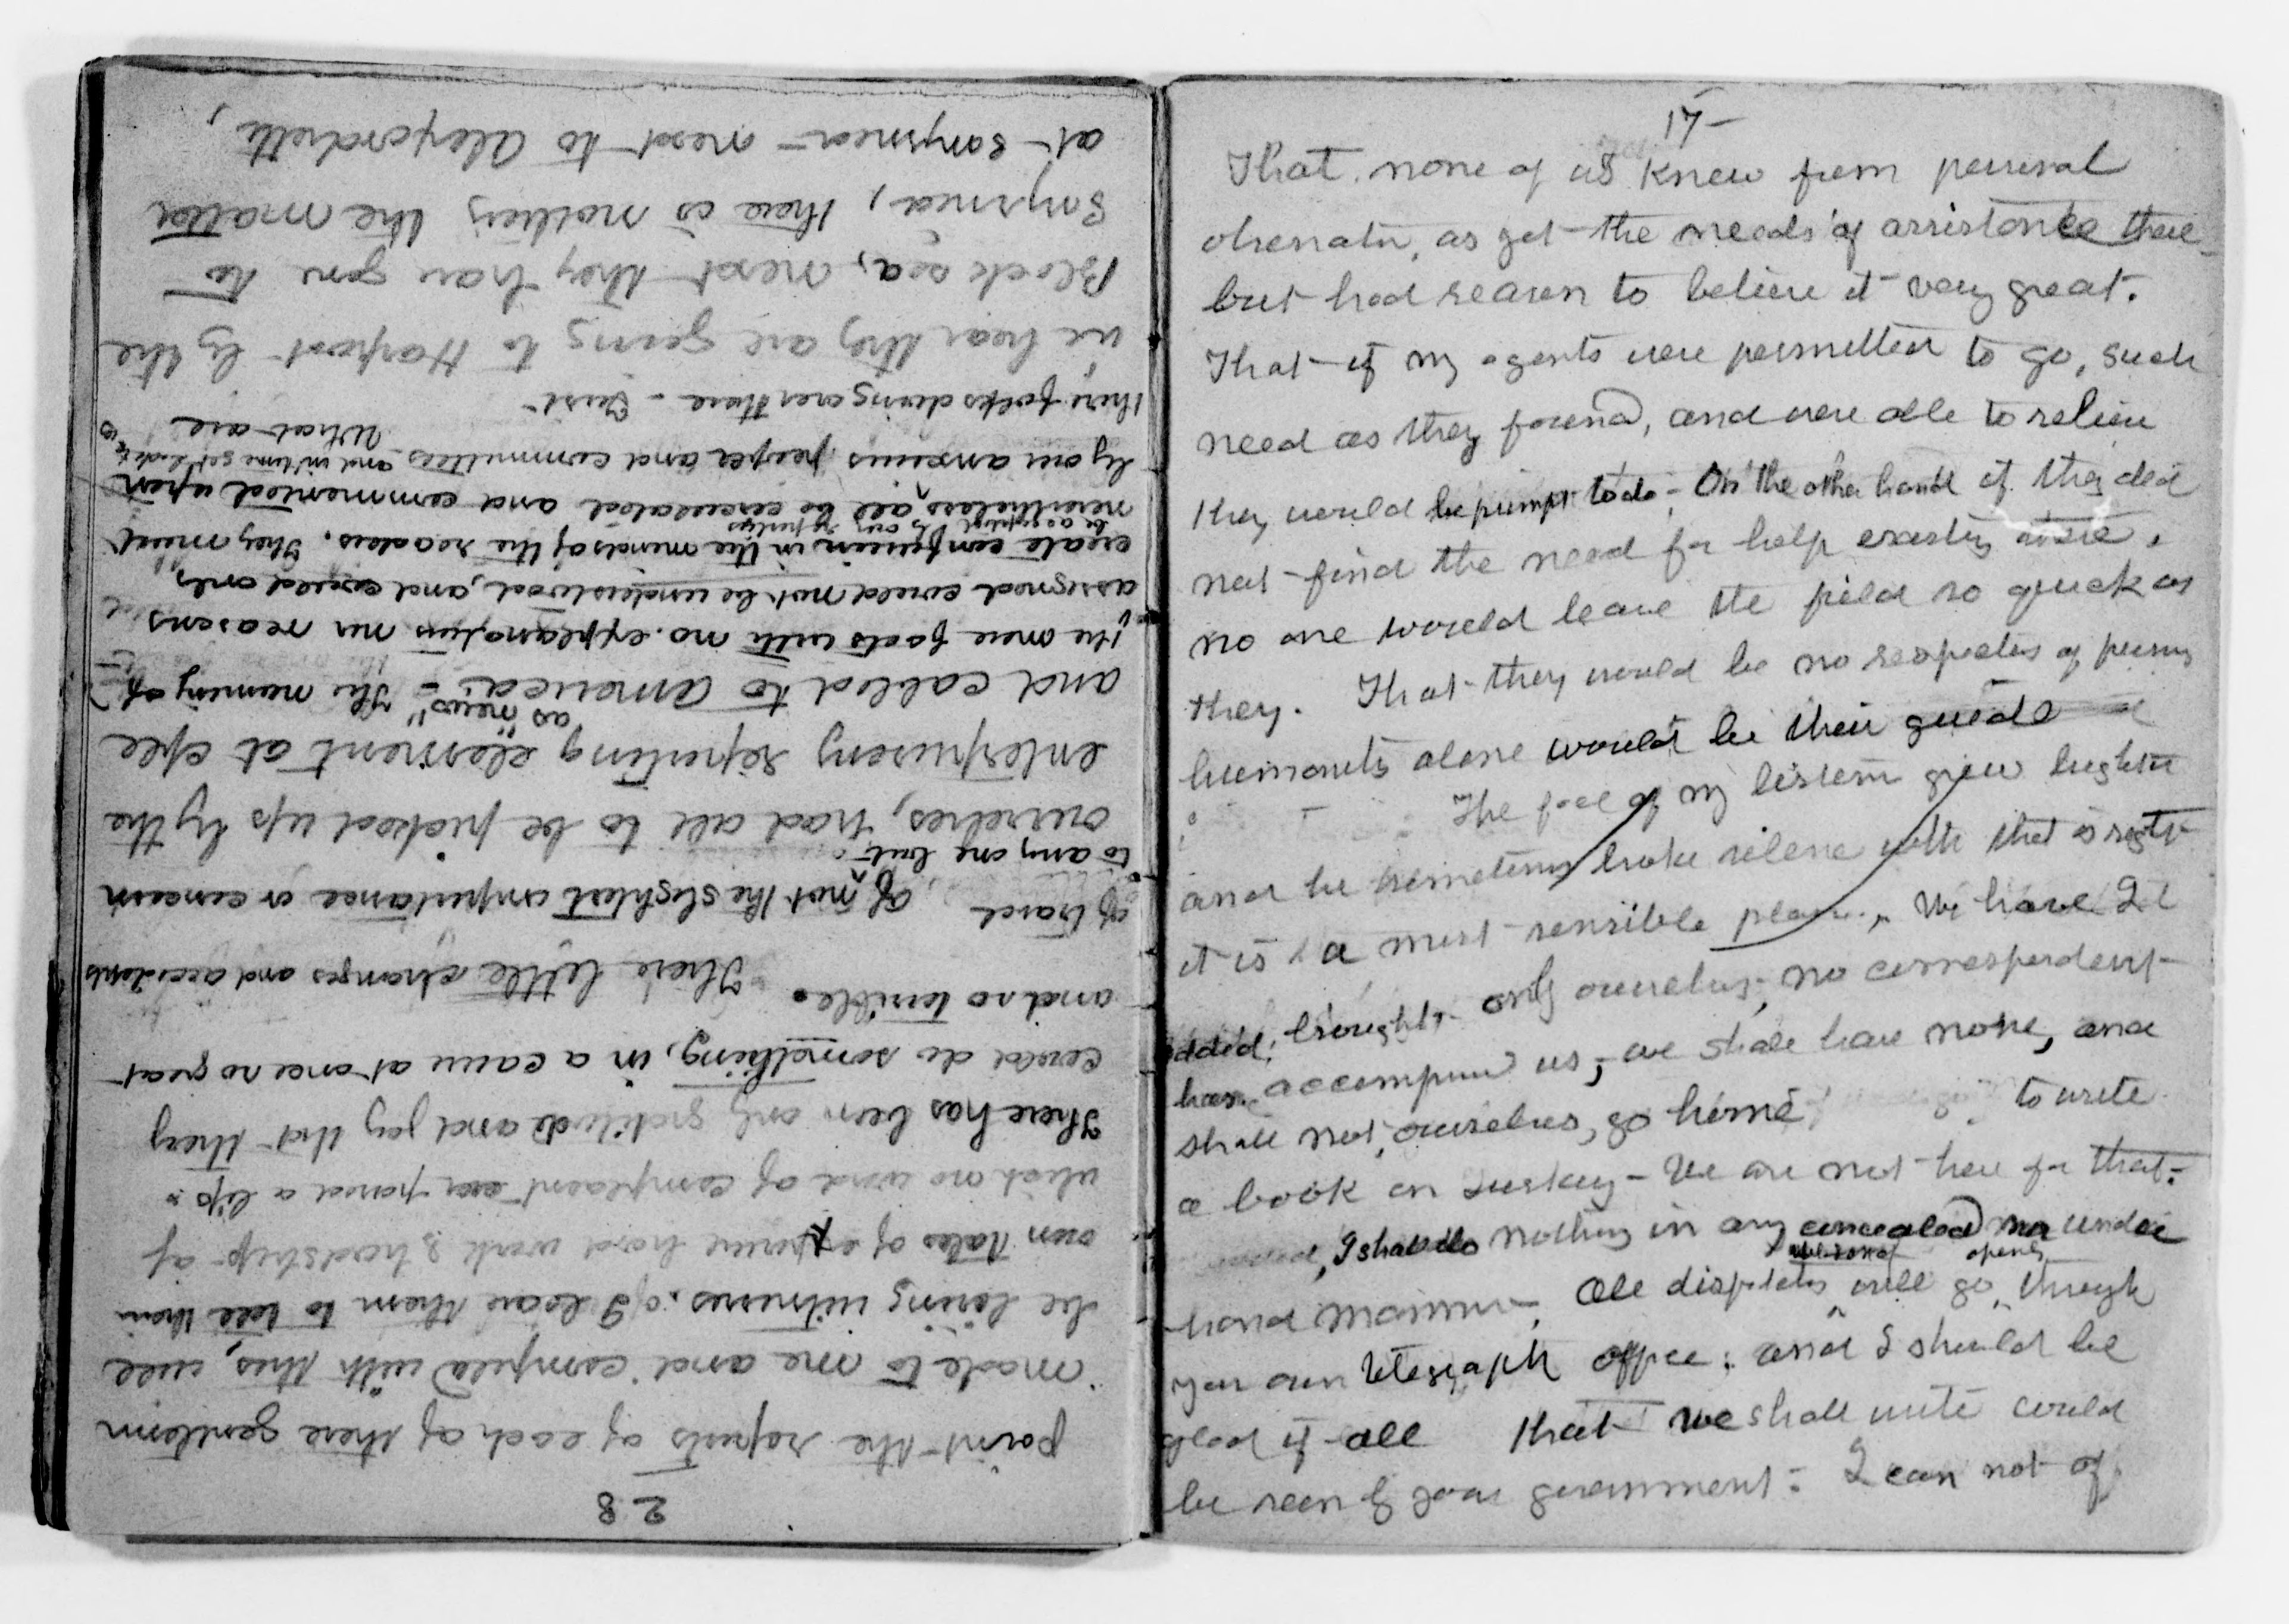 17-
That none of us knew from personal
observatn, as yet the needs of assistance there
but had reason to believe it very great.
That if my agents were permitted to go, such
need as they found, and were able to relieve
they would be prompt to do - On the other hand if they did
not find the need for help existing there,
no one would leave the field so quick as
they. That they would be no respecters of persons
humanity alone would be their guide
The face of my listener grew brighter
and he sometimes broke silence with that is right
it is a most sensible plan., We have I
added, brought only ourselves, no correspondent
has accompanied us, we shall have none, and
shall not, ourselves, go home to write
a book on Turkey - We are not here for that.
I shall do nothing in any concealed or under
hand manner, All dispatches will go openly through
your own telegraph office; and I should be
glad if all that we shall write could
be seen by your government. I can not of
28
point the reports of each of these gentlemen
made to me and compiled with this, will
be living witnesses. I leave them to tell their
own tales of expense hard work & hardship of
which no word of complaint ever passed a lip.
There has been only gratitude and joy that they
could do something, in a cause at once so great
and so terrible. These little changes and accidents
of travel, of not the slightest importance or concern
to any one but
ourselves, had all to be picked up by the
enterprising reporting element at
as "news"
and cabled to America - The meaning of
the mere facts with no explanation nor reasons
assigned could not be understood, and could only
create confusion in the minds of the readers. They must
nevertheless all be circulated and commented upon
by our anxious people and committees and in time get back to us
What are
these folks doing over there - First
we hear they are going to Harpoot by the
Black sea, next they have gone to
Smyrna, there is nothing the matter
at Smyrna - next to Alexandrette,